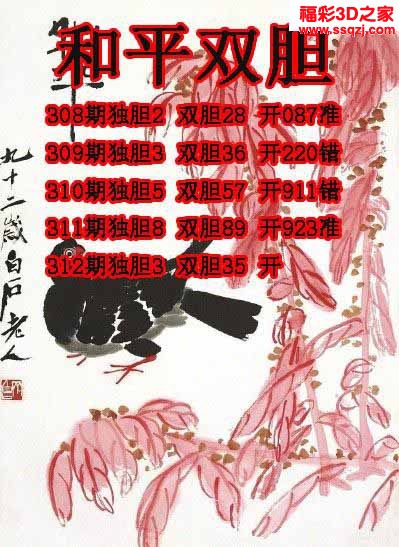 福彩3D之家
www.ssqzj.com
和平双胆
308期独胆2 双胆28 开087准
309期独胆3 双胆36 开220错
310期独胆5 双胆57 开911错
311期独胆8 双胆89 开923准
312期独胆3 双胆35 开
九十二岁白石老人